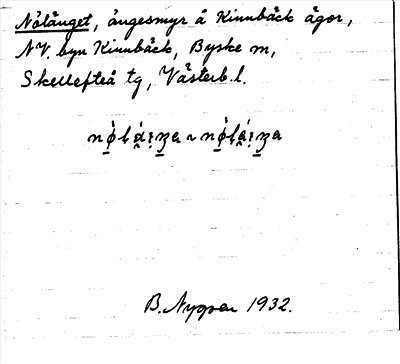 Nölänget, ängesmyr å Kinnbäck ägor,
NV. byn Kinnbäck, Byske sn,
Skellefteå tg, Västerb. l.
B. Nygren 1932.